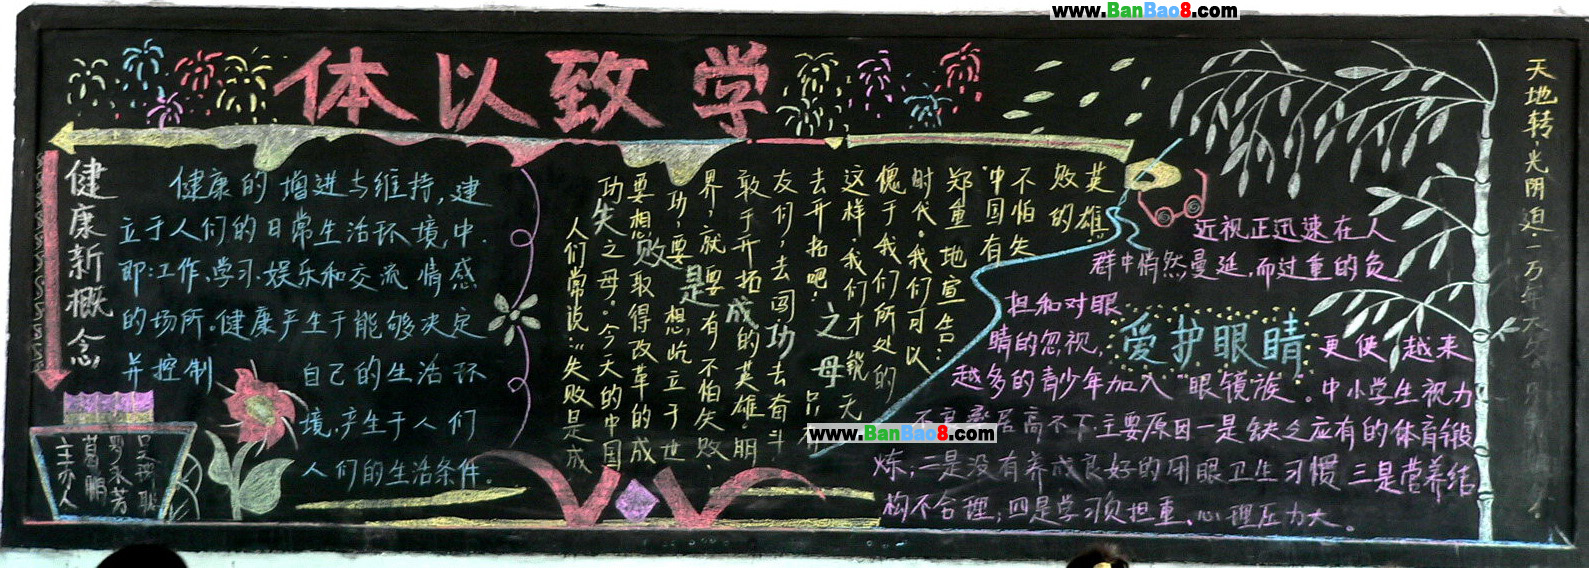 www.BanBao8.com
体以致学
健康新概念
健康的增进与维持,建
立于人们的日常生活环境中.
即:工作、学习、娱乐和交流情感
的场所。健康产生于能够决定
并控制 自己的生活环
境,产生于人们
人们的生活条件。
主办人
葛鹏
失败是成功之母
人们常说:"失败是成
功之母。今天的中国
要想取得改革的成
功,要想屹立于世
界,就要有不怕失败,
敢于开拓的英雄。朋
友们,去闯去奋斗
去开拓吧!只有
这样,我们才能无
愧于我们所处的
时代。我们可以
郑重地宣告:
中国有
不怕失
败的
英雄。
爱护眼睛
近视正迅速在人
群中悄然曼延,而过重的负
担和对眼
睛的忽视,更使越来
越多的青少年加入"眼镜族"。中小学生视力
不良率居高不下.主要原因一是缺乏应有的体育锻
炼;二是没有养成良好的用眼卫生习惯 三是营养结
构不合理;四是学习负担重、心理压力大。
www.BanBao8.com
天地转,光阴迫.一万年